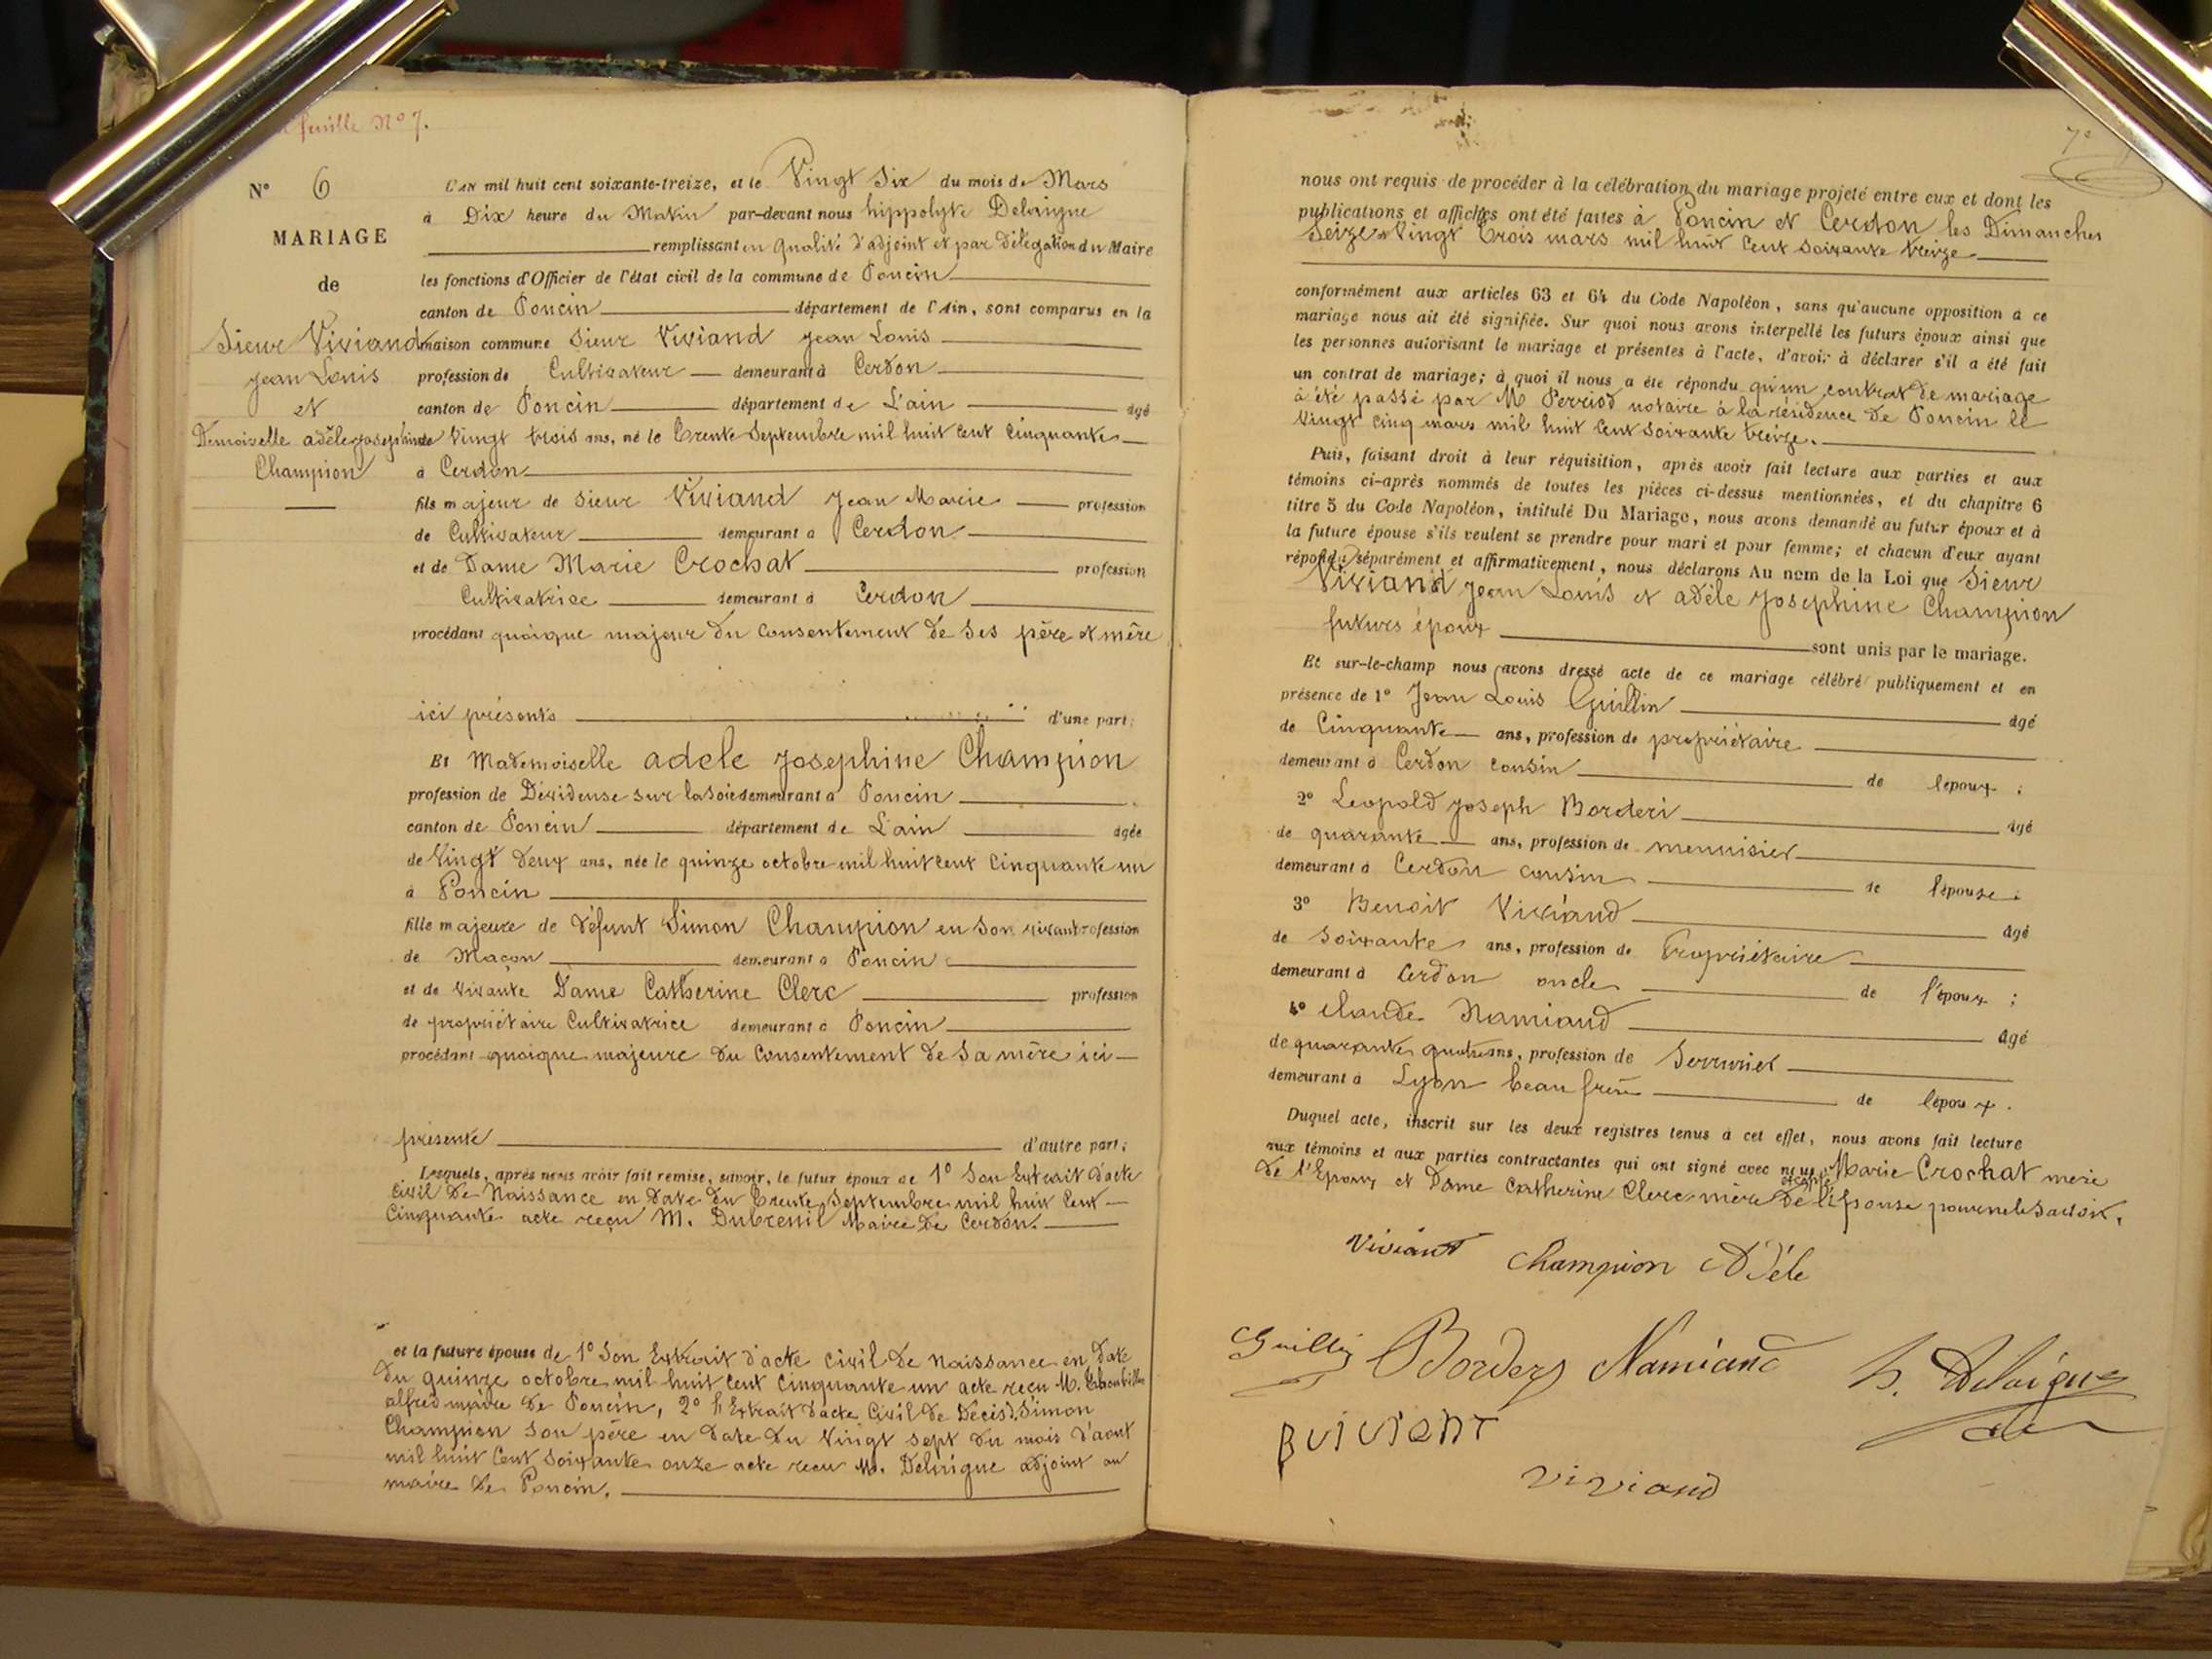 feuille N° 7.
N° 6
MARIAGE
de
Sieur Viviand
Jean Louis
et
Demoiselle adèle josephine
Champion
L'AN mil huit cent soixante-treize, et le Vingt Six du mois de Mars
à Dix heure du Matin par-devant nous hippolyte Delaigue
remplissant en qualité d'adjoint et par délégation du Maire
les fonctions d'Officier de l'état civil de la commune de Poncin
canton de Poncin département de l'Ain, sont comparus en la
maison commune Sieur Viviand Jean Louis
profession de Cultivateur demeurant à Cerdon
canton de Poncin département de L'ain âgé
de Vingt trois ans, né le Trente Septembre mil huit cent Cinquante
à Cerdon
fils majeur de Sieur Viviand Jean Marie profession
de Cultivateur demeurant à Cerdon
et de Dame Marie Crochat profession
Cultivatrice demeurant à Cerdon
procédant quoique majeur du consentement de ses père et mère
ici présents d'une part;
Et Mademoiselle adele Josephine Champion
profession de Dévideuse sur la soie demeurant à Poncin
canton de Poncin département de L'ain âgée
de Vingt deux ans, née le quinze octobre mil huit cent Cinquante un
à Poncin
fille majeure de défunt Simon Champion en son vivant profession
de Maçon demeurant à Poncin
et de vivante Dame Catherine Clerc profession
de propriétaire Cultivatrice demeurant à Poncin
procédant quoique majeure du Consentement de Sa mère ici
présente d'autre part;
Lesquels, après nous avoir fait remise, savoir, le futur époux de 1° Son Extrait d'acte
Civil de Naissance en Date du Trente Septembre mil huit Cent
Cinquante acte reçu M. Dubreuil Maire de Cerdon.
et la future épouse de 1° Son Extrait d'acte Civil de naissance en date
du quinze octobre mil huit Cent Cinquante un acte reçu M.
alfred maire de Poncin, 2° l'Extrait d'acte Civil de Décès d. Simon
Champion Son père en date du Vingt sept du mois d'aout
mil huit Cent Soixante onze acte reçu M. Delaigue adjoint au
maire de Poncin.
7e
nous ont requis de procéder à la célébration du mariage projeté entre eux et dont les
publications et affiches ont été faites à Poncin et Cerdon les Dimanches
Seize et Vingt Trois mars mil huit Cent Soixante treize
conformément aux articles 63 et 64 du Code Napoléon, sans qu'aucune opposition à ce
mariage nous ait été signifiée. Sur quoi nous avons interpellé les futurs époux ainsi que
les personnes autorisant le mariage et présentes à l'acte, d'avoir à déclarer s'il a été fait
un contrat de mariage; à quoi il nous a été répondu qu'un contrat de mariage
à été passé par M Perriod notaire à la résidence de Poncin le
Vingt cinq mars mil huit Cent Soixante treize.
Puis, faisant droit à leur réquisition, après avoir fait lecture aux parties et aux
témoins ci-après nommés de toutes les pièces ci-dessus mentionnées, et du chapitre 6
titre 5 du Code Napoléon, intitulé Du Mariage, nous avons demandé au futur époux et à
la future épouse s'ils veulent se prendre pour mari et pour femme; et chacun d'eux ayant
répondu séparément et affirmativement, nous déclarons Au nom de la Loi que Sieur
Viviand Jean Louis et adèle Josephine Champion
futurs époux sont unis par le mariage.
Et sur-le-champ nous avons dressé acte de ce mariage célébré publiquement et en
présence de 1° Jean Louis Guillin âgé
de Cinquante ans, profession de propriétaire
demeurant à Cerdon cousin de l'epoux ;
2° Leopold Joseph Borderi âgé
de quarante ans, profession de menuisier
demeurant à Cerdon cousin de l'épouse ;
3° Benoit Viviand âgé
de Soixante ans, profession de Propriétaire
demeurant à Cerdon oncle de l'époux ;
4° Claude Namiand âgé
de quarante quatre ans, profession de Serrurier
demeurant à Lyon beau frère de l'époux .
Duquel acte, inscrit sur les deux registres tenus à cet effet, nous avons fait lecture
aux témoins et aux parties contractantes qui ont signé avec nous excepté Marie Crochat mère
de l'Epoux et Dame Catherine Clerc mère de l'épouse pour ne le Savoir.
Viviant Champion Adèle
Guillin Bordery Namiand h. Delaigue
B viviant
viviand